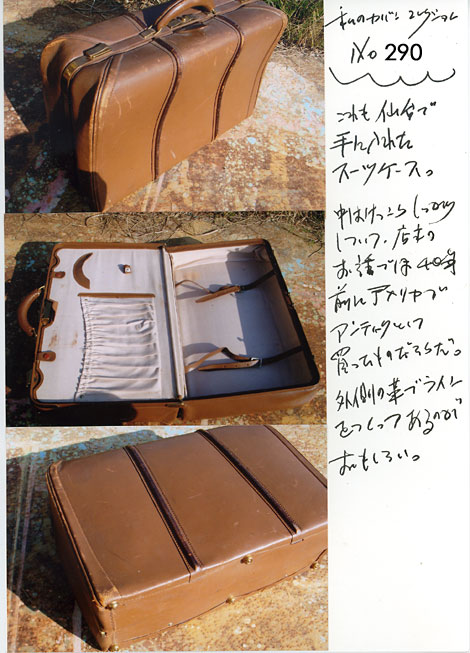 私のカバン コレクション
No 290
これも仙台で
手に入れた
スーツケース。
中はけっこうしっかり
していて、店主の
お話では40年
前にアメリカで
アンティークとして
買ったものだそうだ。
外側の革でライン
をつくってあるのが
おもしろい。